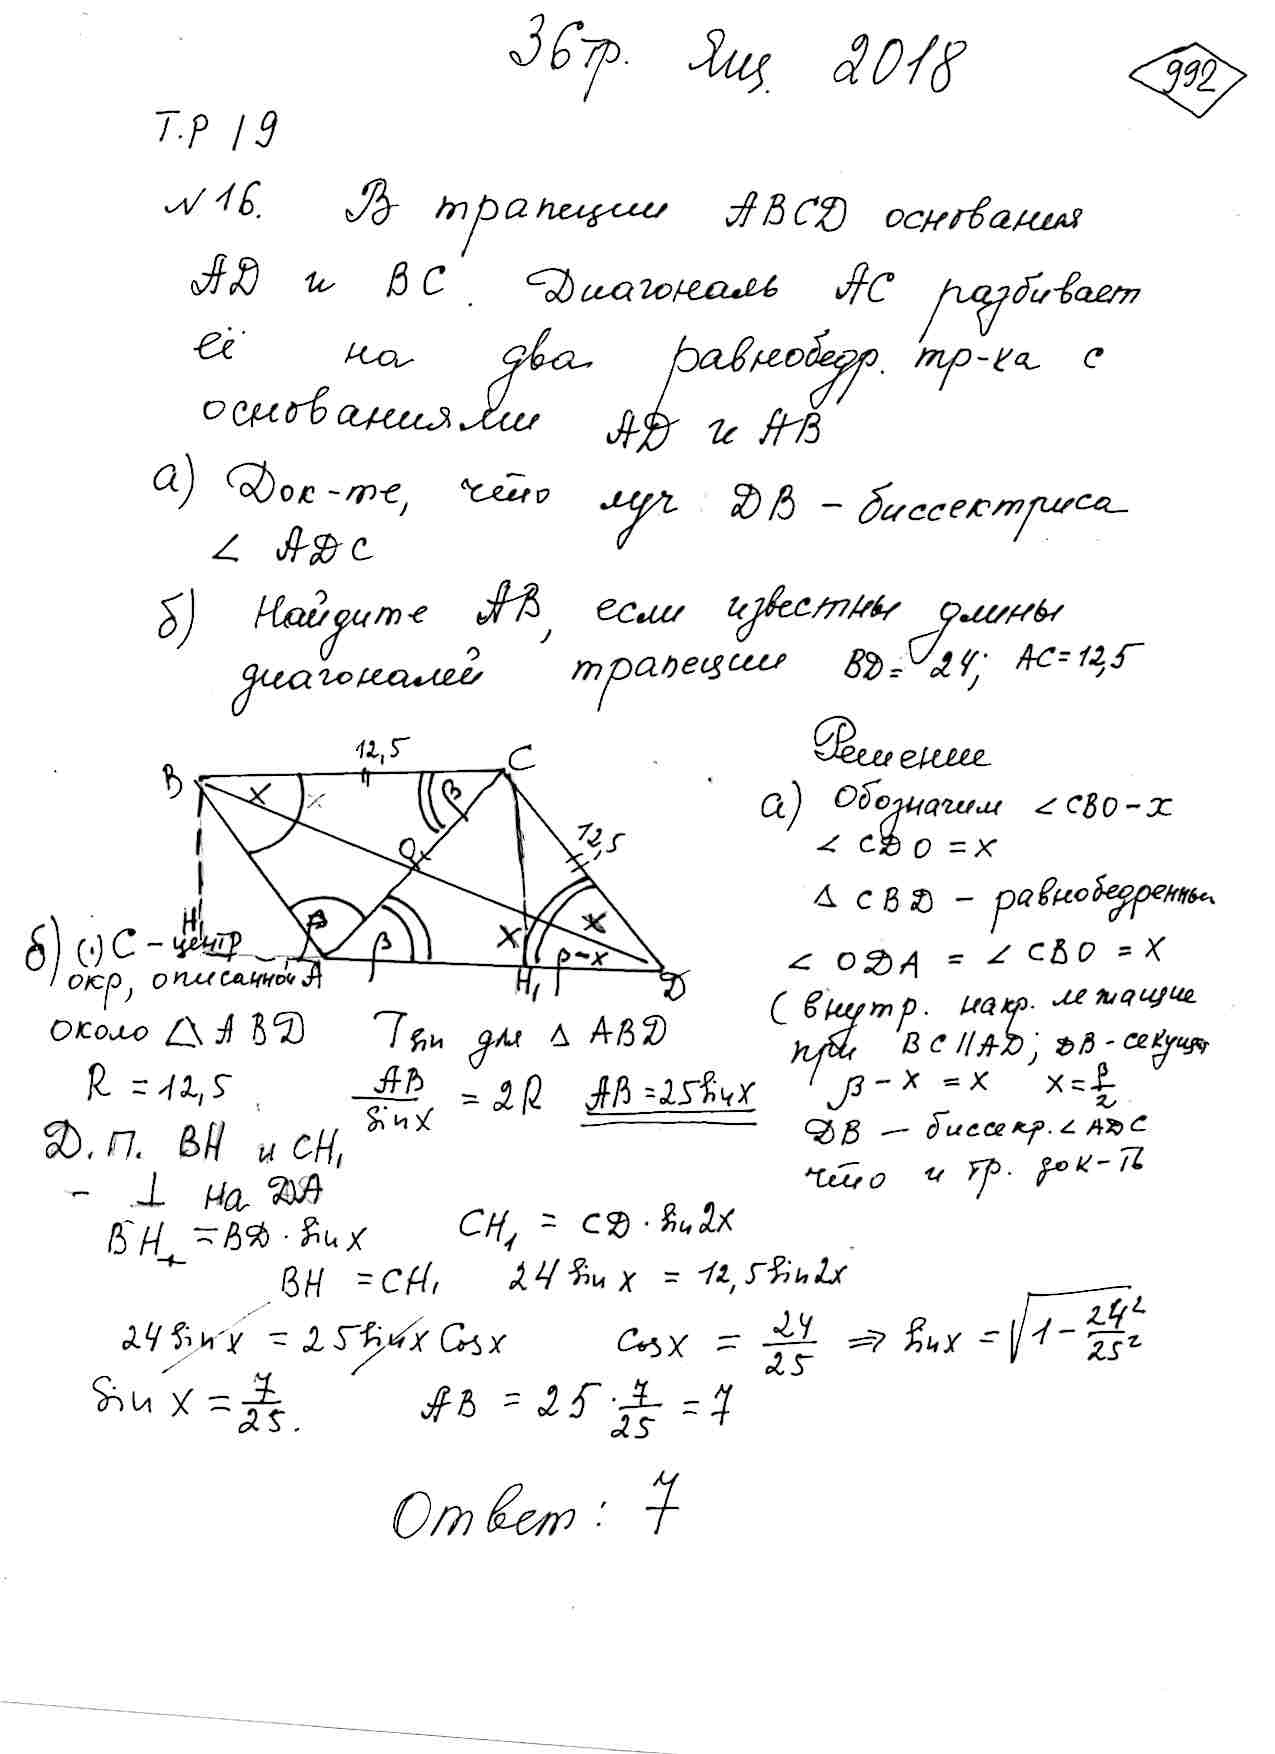 36тр. Янв. 2018
992
Т.Р 19
№16. В трапеции ABCD основания
AD и BC. Диагональ AC разбивает
её на два равнобедр. тр-ка с
основаниями AD и AB
а) Док-те, что луч DB - биссектриса
∠ ADC
б) Найдите AB, если известны длины
диагоналей трапеции BD = 24; AC = 12,5
B 12,5 C
x x β
O 12,5
H β β x x β-x
A H₁ D
Решение
а) Обозначим ∠CBO - x
∠ CDO = x
Δ CBD - равнобедренный
∠ ODA = ∠ CBO = x
(внутр. накр. лежащие
при BC || AD; DB - секущ
β - x = x x = β/2
DB - биссекр. ∠ ADC
что и тр. док-ть
б) (·) C - центр
окр, описанной
около Δ ABD Tsin для Δ ABD
R = 12,5 AB/sinx = 2R AB = 25sinx
Д.П. BH и CH₁
- ⊥ на DA
BH = BD · sinx CH₁ = CD · sin2x
BH = CH₁ 24 sinx = 12,5sin2x
24 sinx = 25 sinx Cosx Cosx = 24/25 ⇒ sinx = √(1 - 24²/25²)
Sin x = 7/25. AB = 25 · 7/25 = 7
Ответ: 7